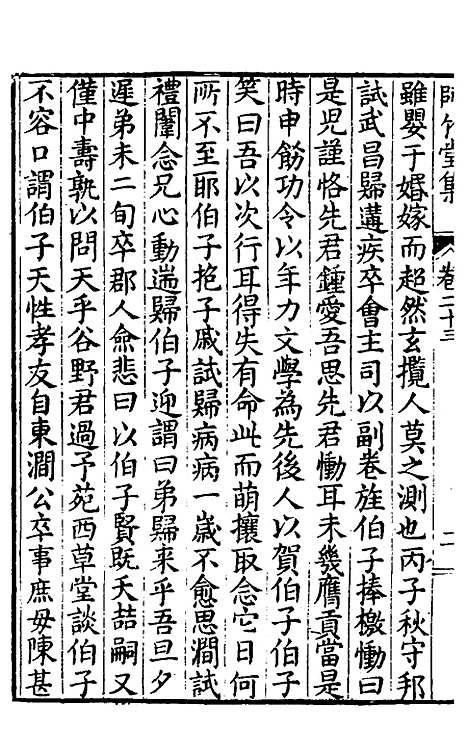 師竹堂集 卷二十三 二
雖嬰于婚嫁而超然玄攬人莫之測也丙子秋守邦
試武昌歸遘疾卒會主司以副卷旌伯子捧檄慟曰
是兒謹恪先君鍾愛吾思先君慟耳未幾膺貢當是
時申飭功令以年力文學為先後人以賀伯子伯子
笑曰吾以次行耳得失有命此而萌攘取念它日何
所不至耶伯子抱子戚試歸病病一歲不愈思澗試
禮闈念兄心動遄歸伯子迎謂曰弟歸來乎吾旦夕
遲弟未二旬卒郡人僉悲曰以伯子賢既夭喆嗣又
僅中壽孰以問天乎谷野君過予苑西草堂談伯子
不容口謂伯子天性孝友自東澗公卒事庶毋陳甚